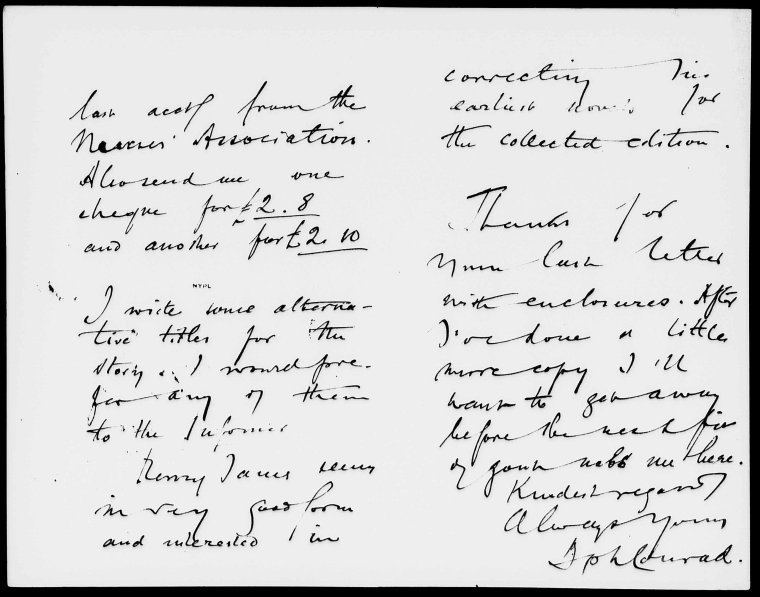 last acct from the
Nurses' Association.
Also send me one
cheque for £2.8
and another for £2.10
NYPL
I write some alterna-
tive titles for the
story. I would pre-
fer any of them
to the Informer
Henry James seems
in very good form
and interested in
correcting his
earliest novels for
the collected edition.
Thanks for
your last letter
with enclosures. After
I've done a little
more copy I'll
want to get away
before the next fit
of gout nabs me here.
Kindest regards
Always Yours
Jph Conrad.